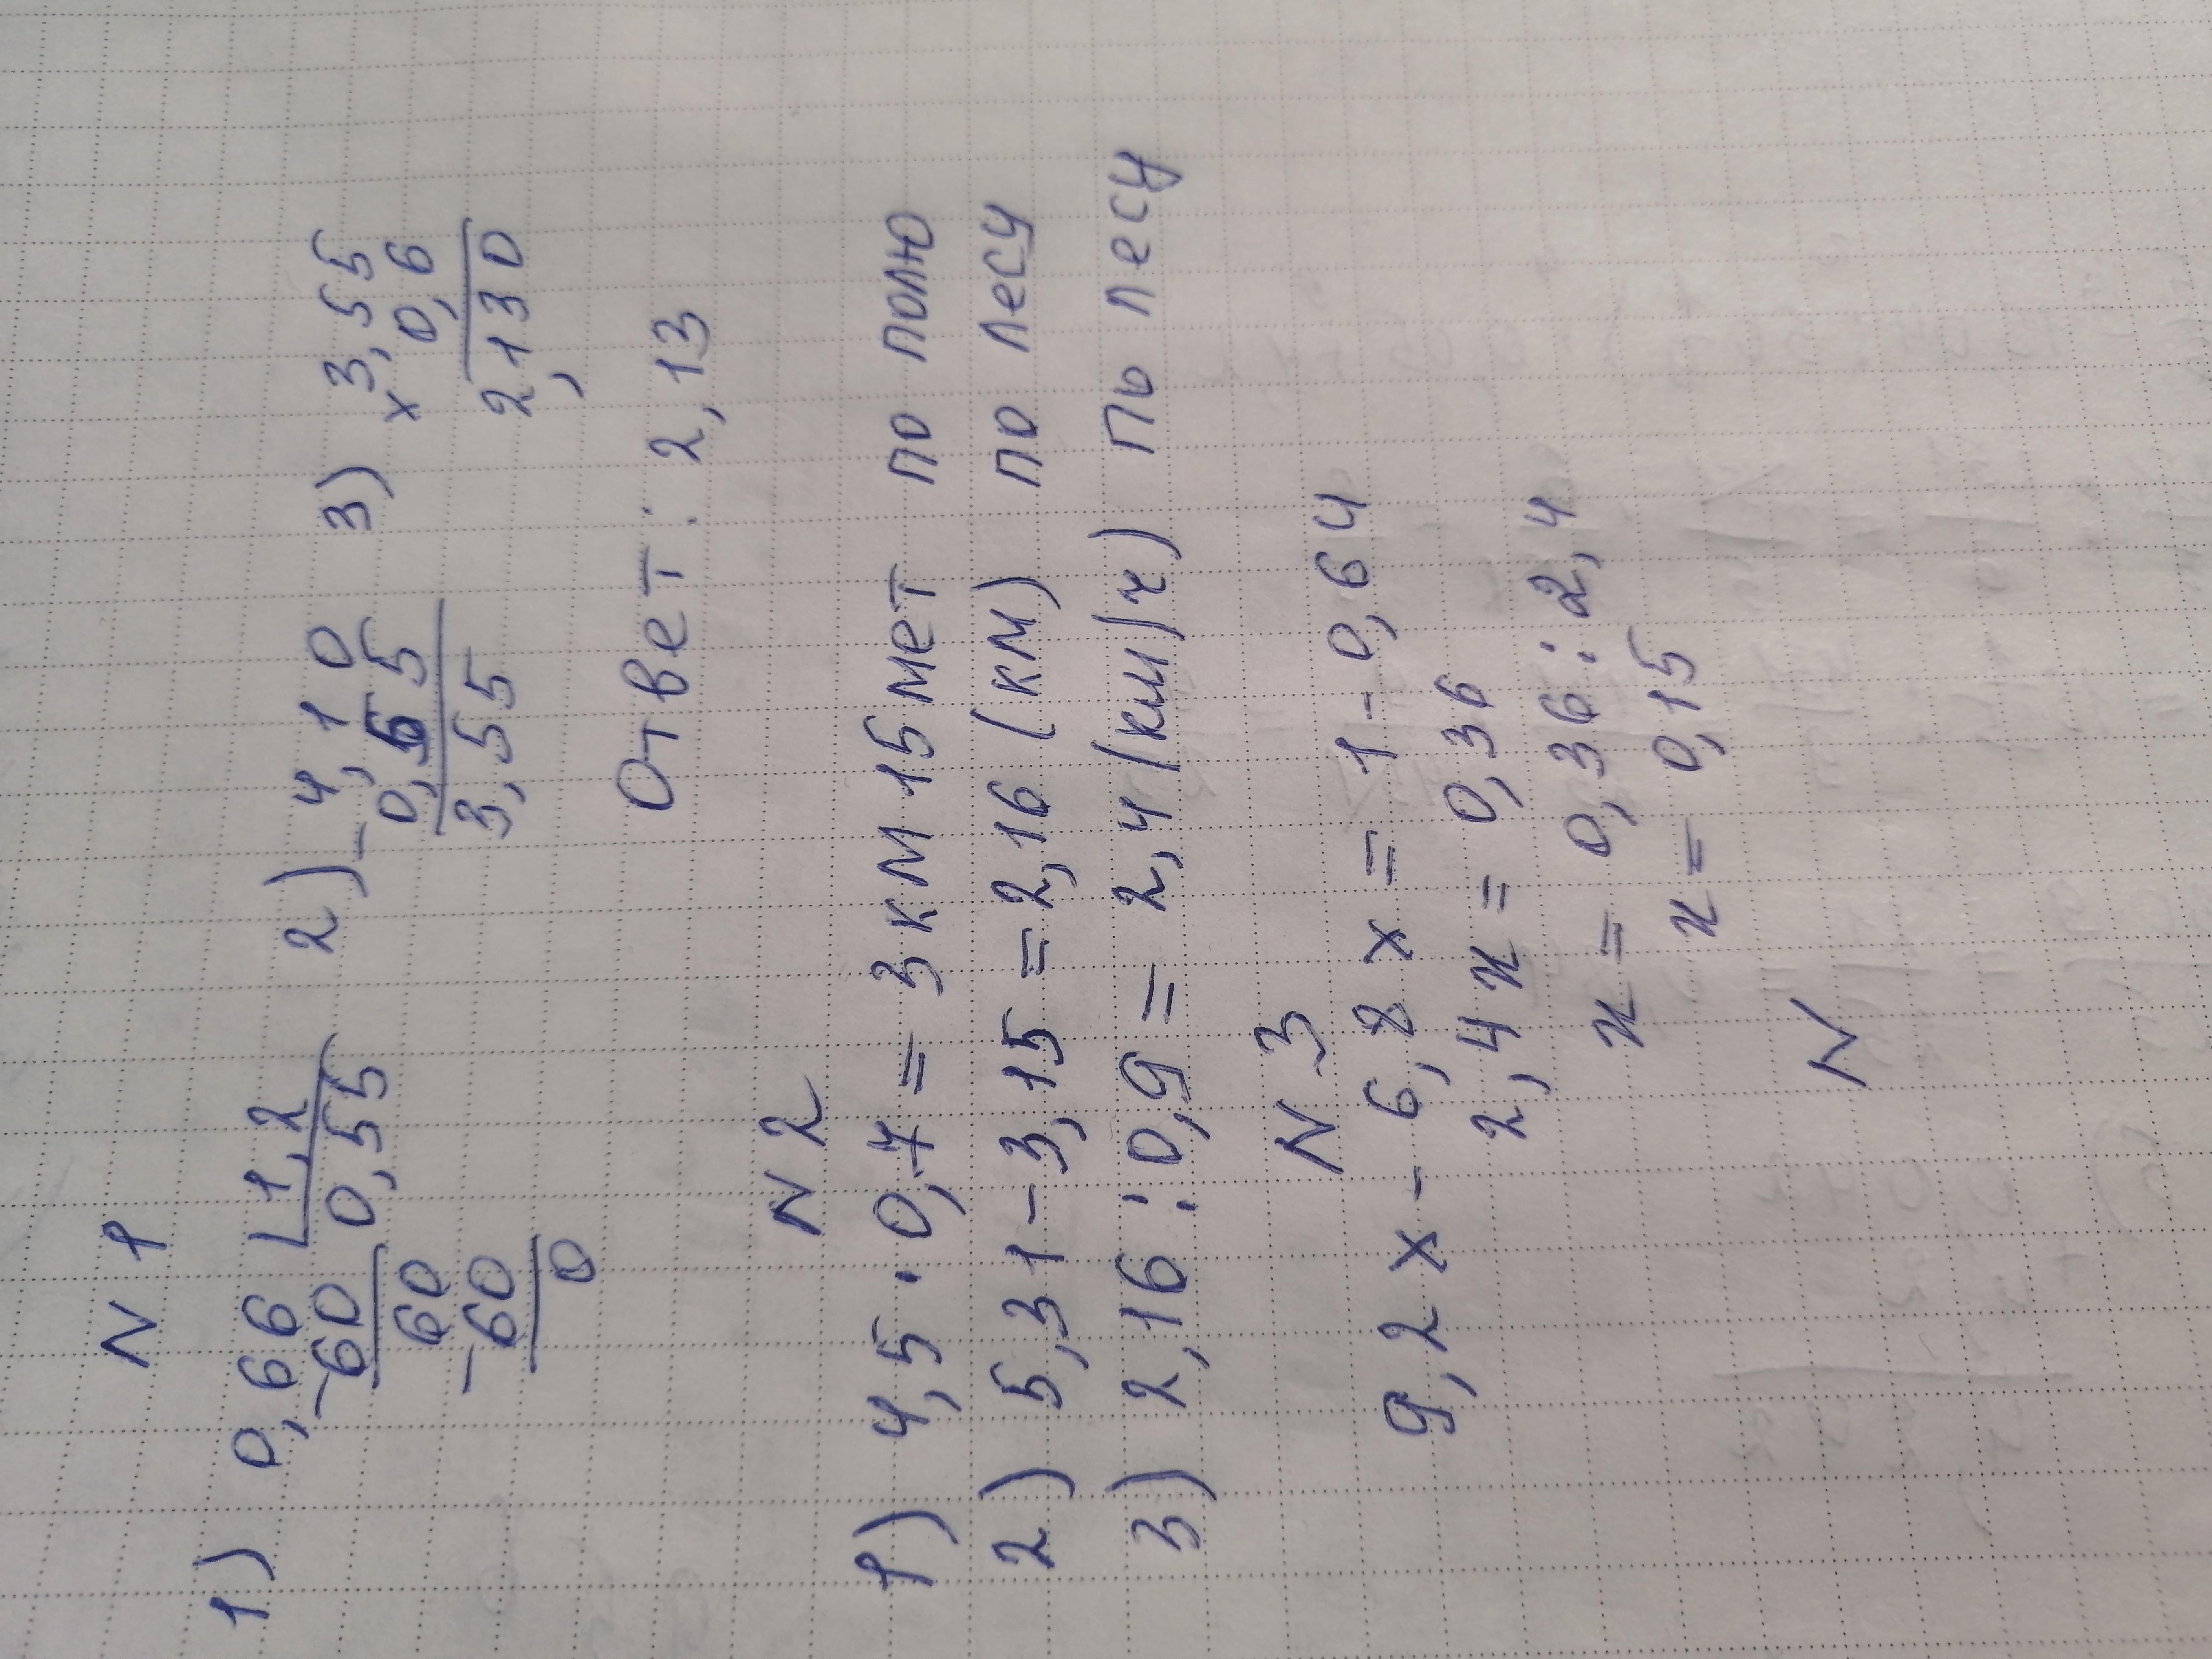 N 1
1) 0,66 | 1,2 2) - 4,10 3) x 3,55
- 60 0,55 0,55 0,6
60 3,55 2,130
- 60
0
Ответ: 2,13
N 2
1) 4,5 · 0,7 = 3 км 15 мет по полю
2) 5,31 - 3,15 = 2,16 (км) по лесу
3) 2,16 : 0,9 = 2,4 (км/ч) по лесу
N 3
9,2 x - 6,8 x = 1 - 0,64
2,4 x = 0,36
x = 0,36 : 2,4
x = 0,15
N